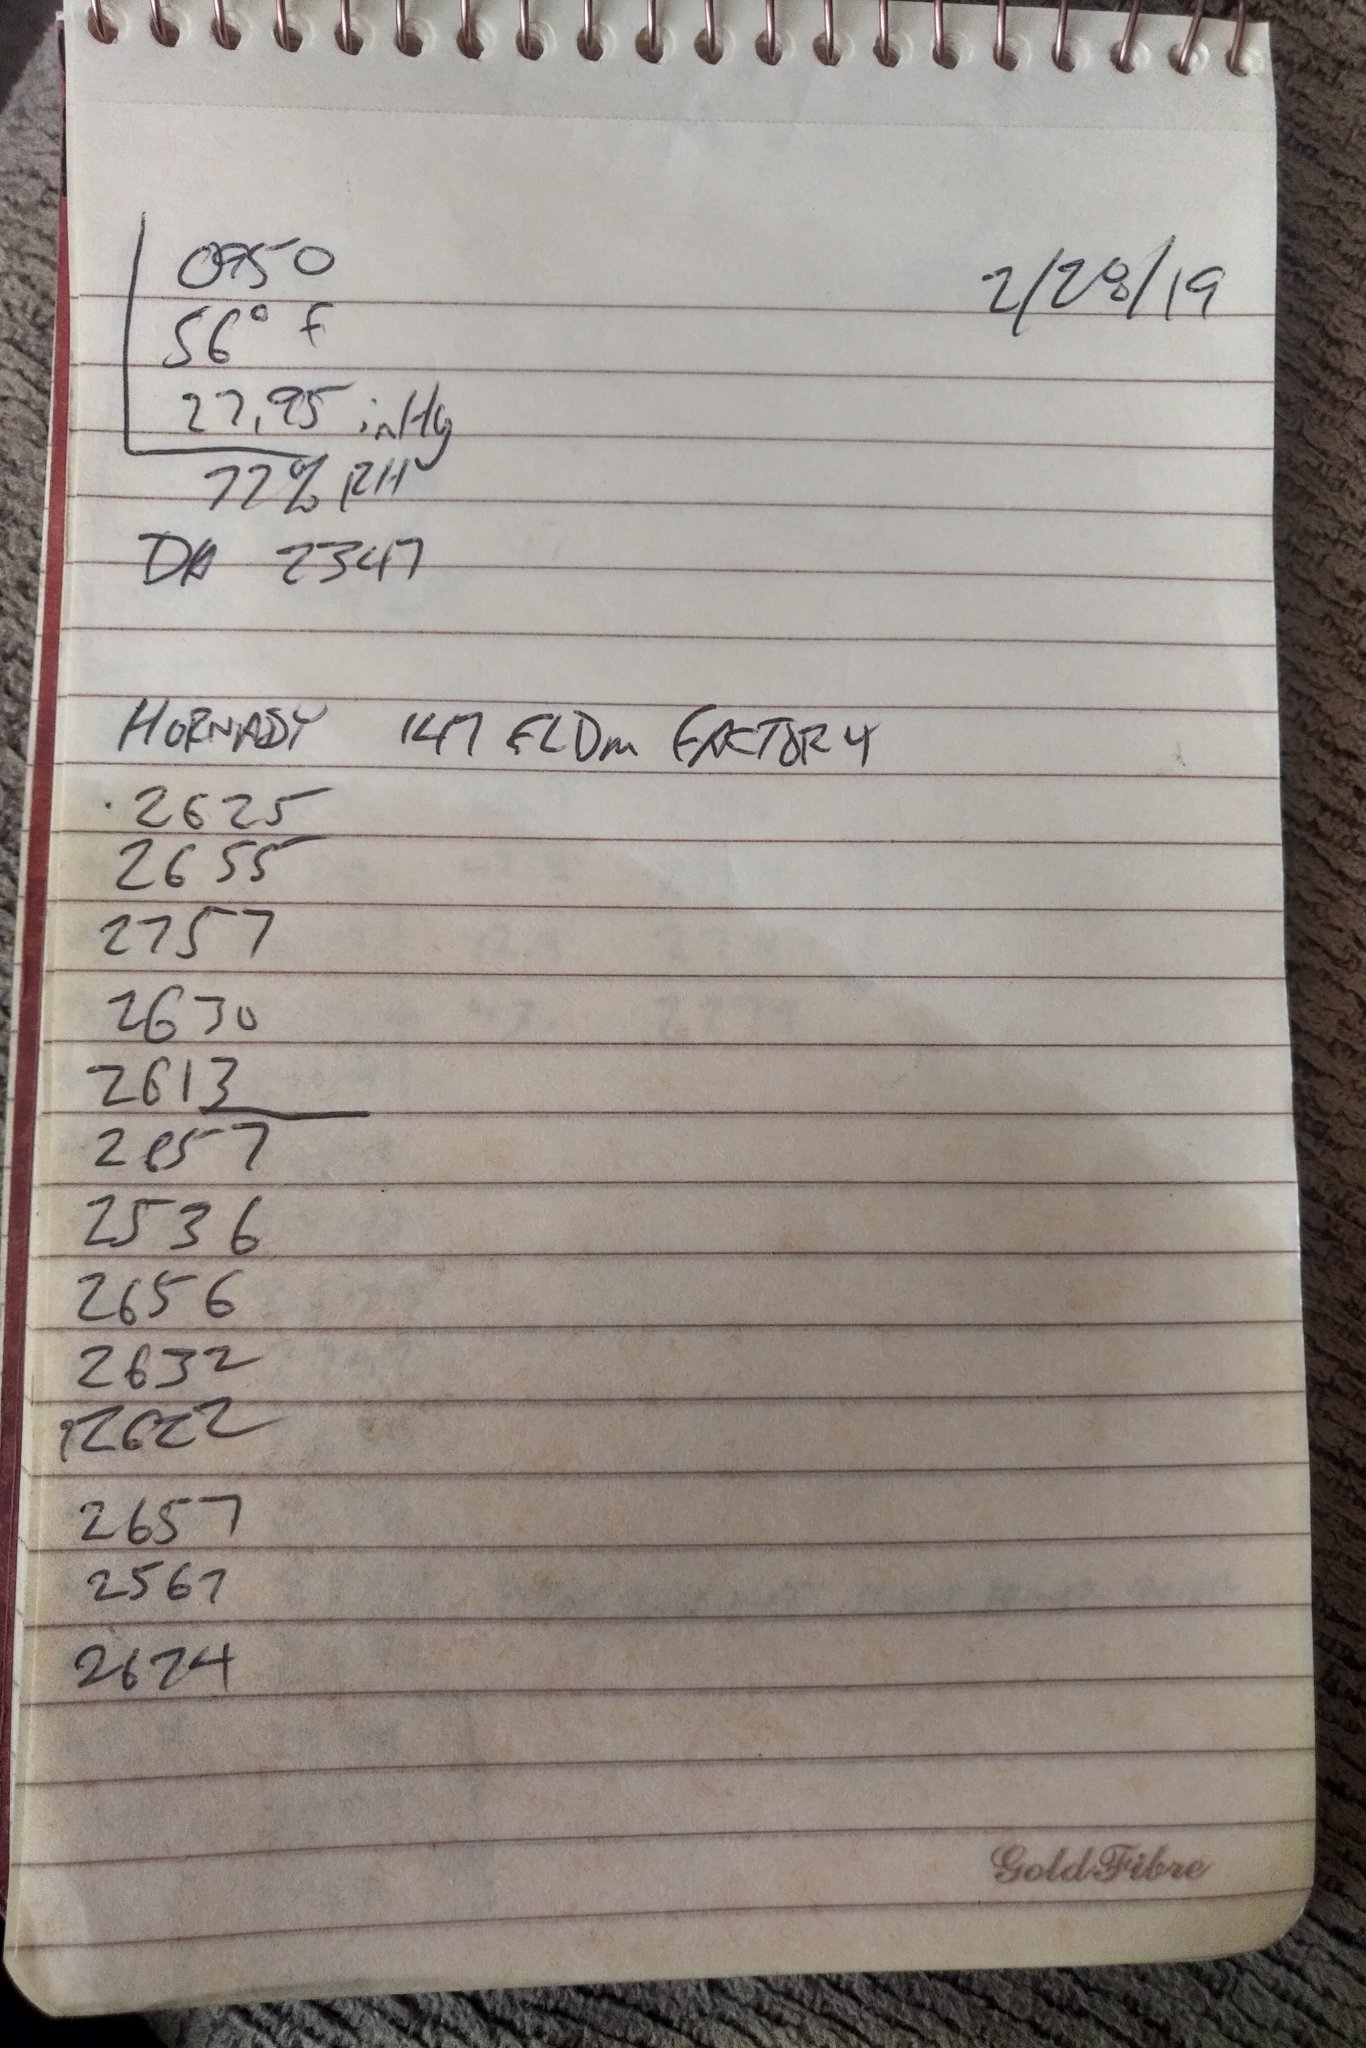 0950
2/28/19
56° F
27.95 inHg
77% RH
DA 2347
HORNADY 147 ELDm FACTORY
2625
2655
2757
2630
2613
2657
2536
2656
2632
2622
2657
2567
2674
GoldFibre